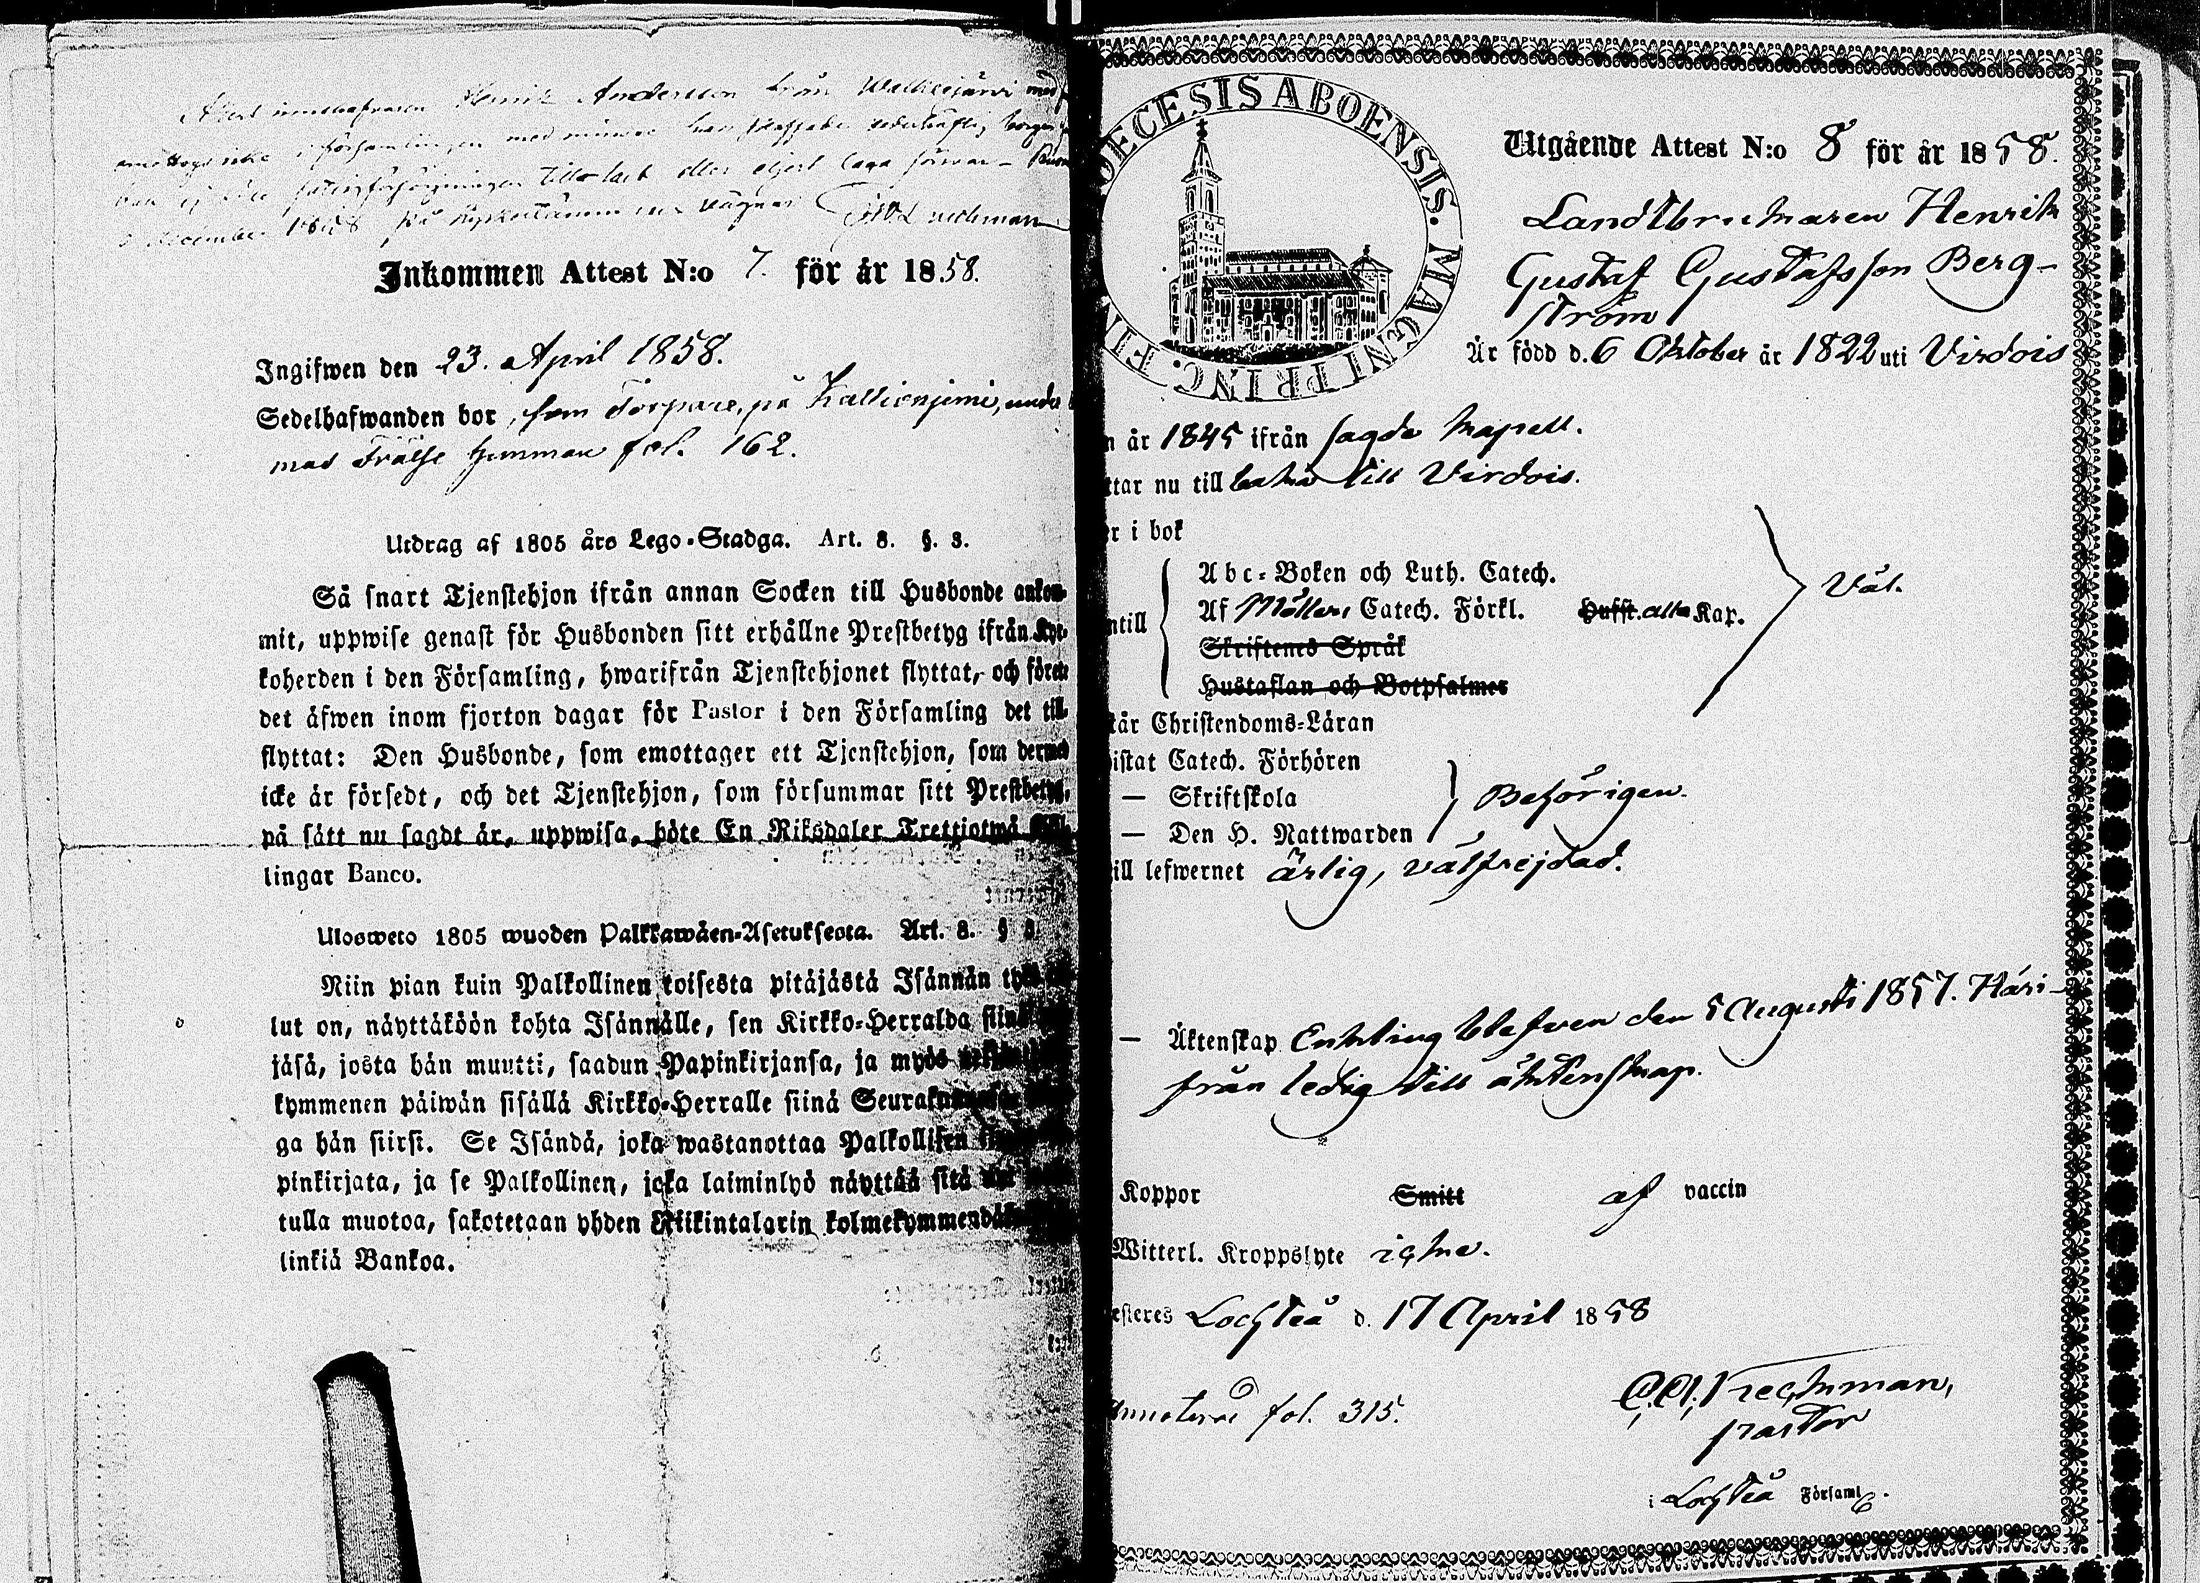 Henrik Andersson från
i församlingen med mindre han
eller eljest laga
December 1858 på
Inkommen Attest N:o 7. för år 1858.
Ingifwen den 23. April 1858.
Sedelhafwanden bor, som Torpare, på Kallioniemi, under
fol. 162.
Utdrag af 1805 års Lego-Stadga. Art. 8. §. 3.
Så snart Tjenstehjon ifrån annan Socken till Husbonde ankom-
mit, uppwise genast för Husbonden sitt erhållne Prestbetyg ifrån Kyr-
koherden i den Församling, hwarifrån Tjenstehjonet flyttat, och förete
det äfwen inom fjorton dagar för Pastor i den Församling det till-
flyttat: Den Husbonde, som emottager ett Tjenstehjon, som dermed
icke är försedt, och det Tjenstehjon, som försummar sitt Prestbetyg,
på sätt nu sagdt är, uppwisa, böte En Riksdaler Trettjotwå
lingar Banco.
Ulosweto 1805 wuoden Palkkawäen-Asetuksesta. Art. 8. § 3.
Niin pian kuin Palkollinen toisesta pitäjästä Isännän
lut on, näyttäköön kohta Isännälle, sen Kirkko-Herralda
jäsä, josta hän muutti, saadun Papinkirjansa, ja myös
kymmenen päiwän sisällä Kirkko-Herralle siinä
ga hän siirsi. Se Isändä, joka wastanottaa Palkollisen
pinkirjata, ja se Palkollinen, joka laiminlyö näyttää sitä
tulla muotoa, sakotetaan yhden Riikintalarin
linkiä Bankoa.
DIOECESIS ABOENSIS. MAGNI PRINC. FIN
Utgående Attest N:o 8 för år 1858.
Landtbrukaren Henrik
Gustaf Gustafsson Berg-
ström
Är född d. 6 Oktober år 1822 uti Virdois
n år 1845 ifrån sagde kapell.
ttar nu till baka till Virdois.
r i bok
Abc-Boken och Luth. Catech.
Af Möllers Catech. Förkl. Husst. alla Kap.
Väl.
ntill
Skriftenes Språk
Hustaflan och Botpsalmer
tår Christendoms-Läran
istat Catech. Förhören
— Skriftskola
Behörigen.
— Den H. Nattwarden
ill lefwernet ärlig, välfrejdad.
— Äktenskap Enkling blefven den 5 Augusti 1857. Häri-
från ledig till äktenskap.
Koppor Smitt af vaccin
Witterl. Kroppslyte icke.
esteres Lochteå d. 17 April 1858
fol. 315.
pastor
i Lochteå Församl.